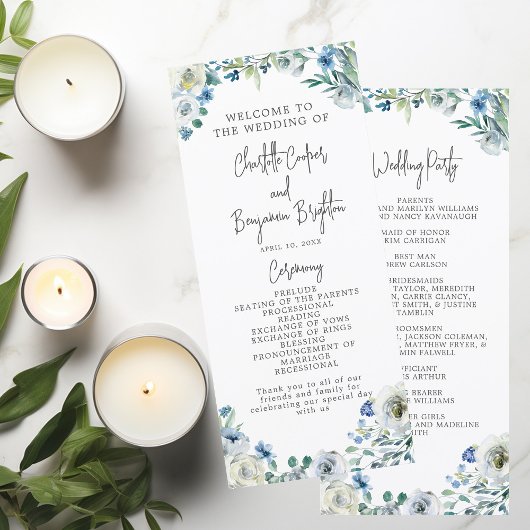 WELCOME TO
THE WEDDING OF
Charlotte Cooper
and
Benjamin Brighton
APRIL 10, 20XX
Ceremony
PRELUDE
SEATING OF THE PARENTS
PROCESSIONAL
READING
EXCHANGE OF VOWS
EXCHANGE OF RINGS
BLESSING
PRONOUNCEMENT OF
MARRIAGE
RECESSIONAL
Thank you to all of our
friends and family for
celebrating our special day
with us
Wedding Party
PARENTS
AND MARILYN WILLIAMS
AND NANCY KAVANAUGH
MAID OF HONOR
KIM CARRIGAN
BEST MAN
DREW CARLSON
BRIDESMAIDS
TAYLOR, MEREDITH
, CARRIE CLANCY,
T SMITH, & JUSTINE
TAMBLIN
ROOMSMEN
, JACKSON COLEMAN,
, MATTHEW FRYER, &
MIN FALWELL
FICIANT
S ARTHUR
G BEARER
E WILLIAMS
ER GIRLS
AND MADELINE
ITH